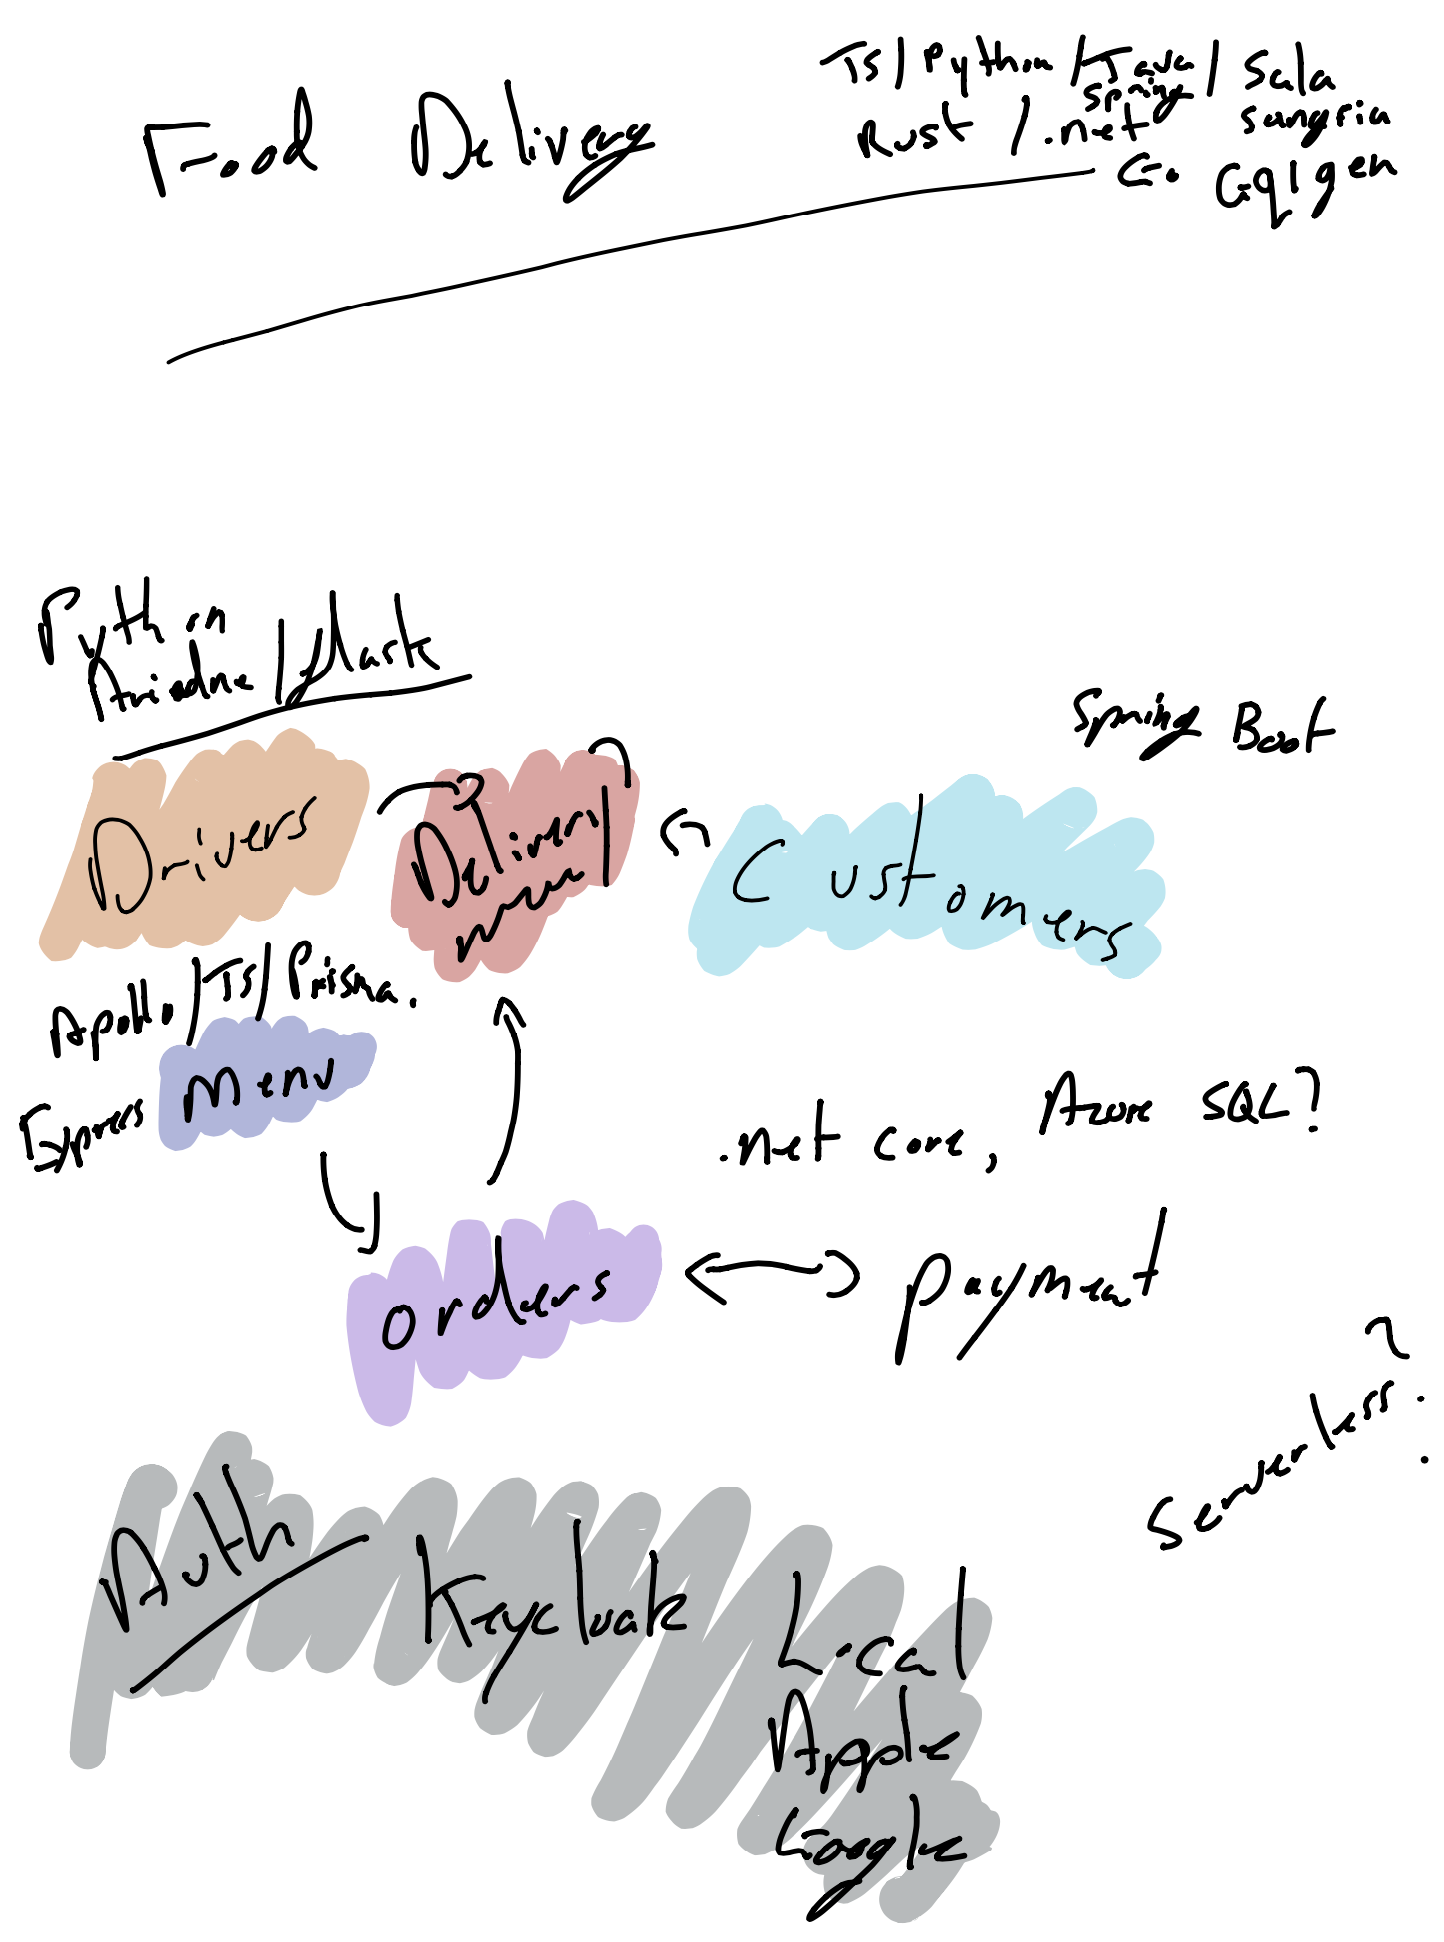 Food Delivery
TS / Python / Java / Scala
Spring sangria
Rust / .net
Go Gqlgen
Python
Ariadne / flask
Spring Boot
Drivers
Delivery
Customers
Apollo / TS / Prisma.
Menu
Express
.net core, Azure SQL?
orders
payment
Serverless?
Auth
Keycloak
Local
Apple
Google